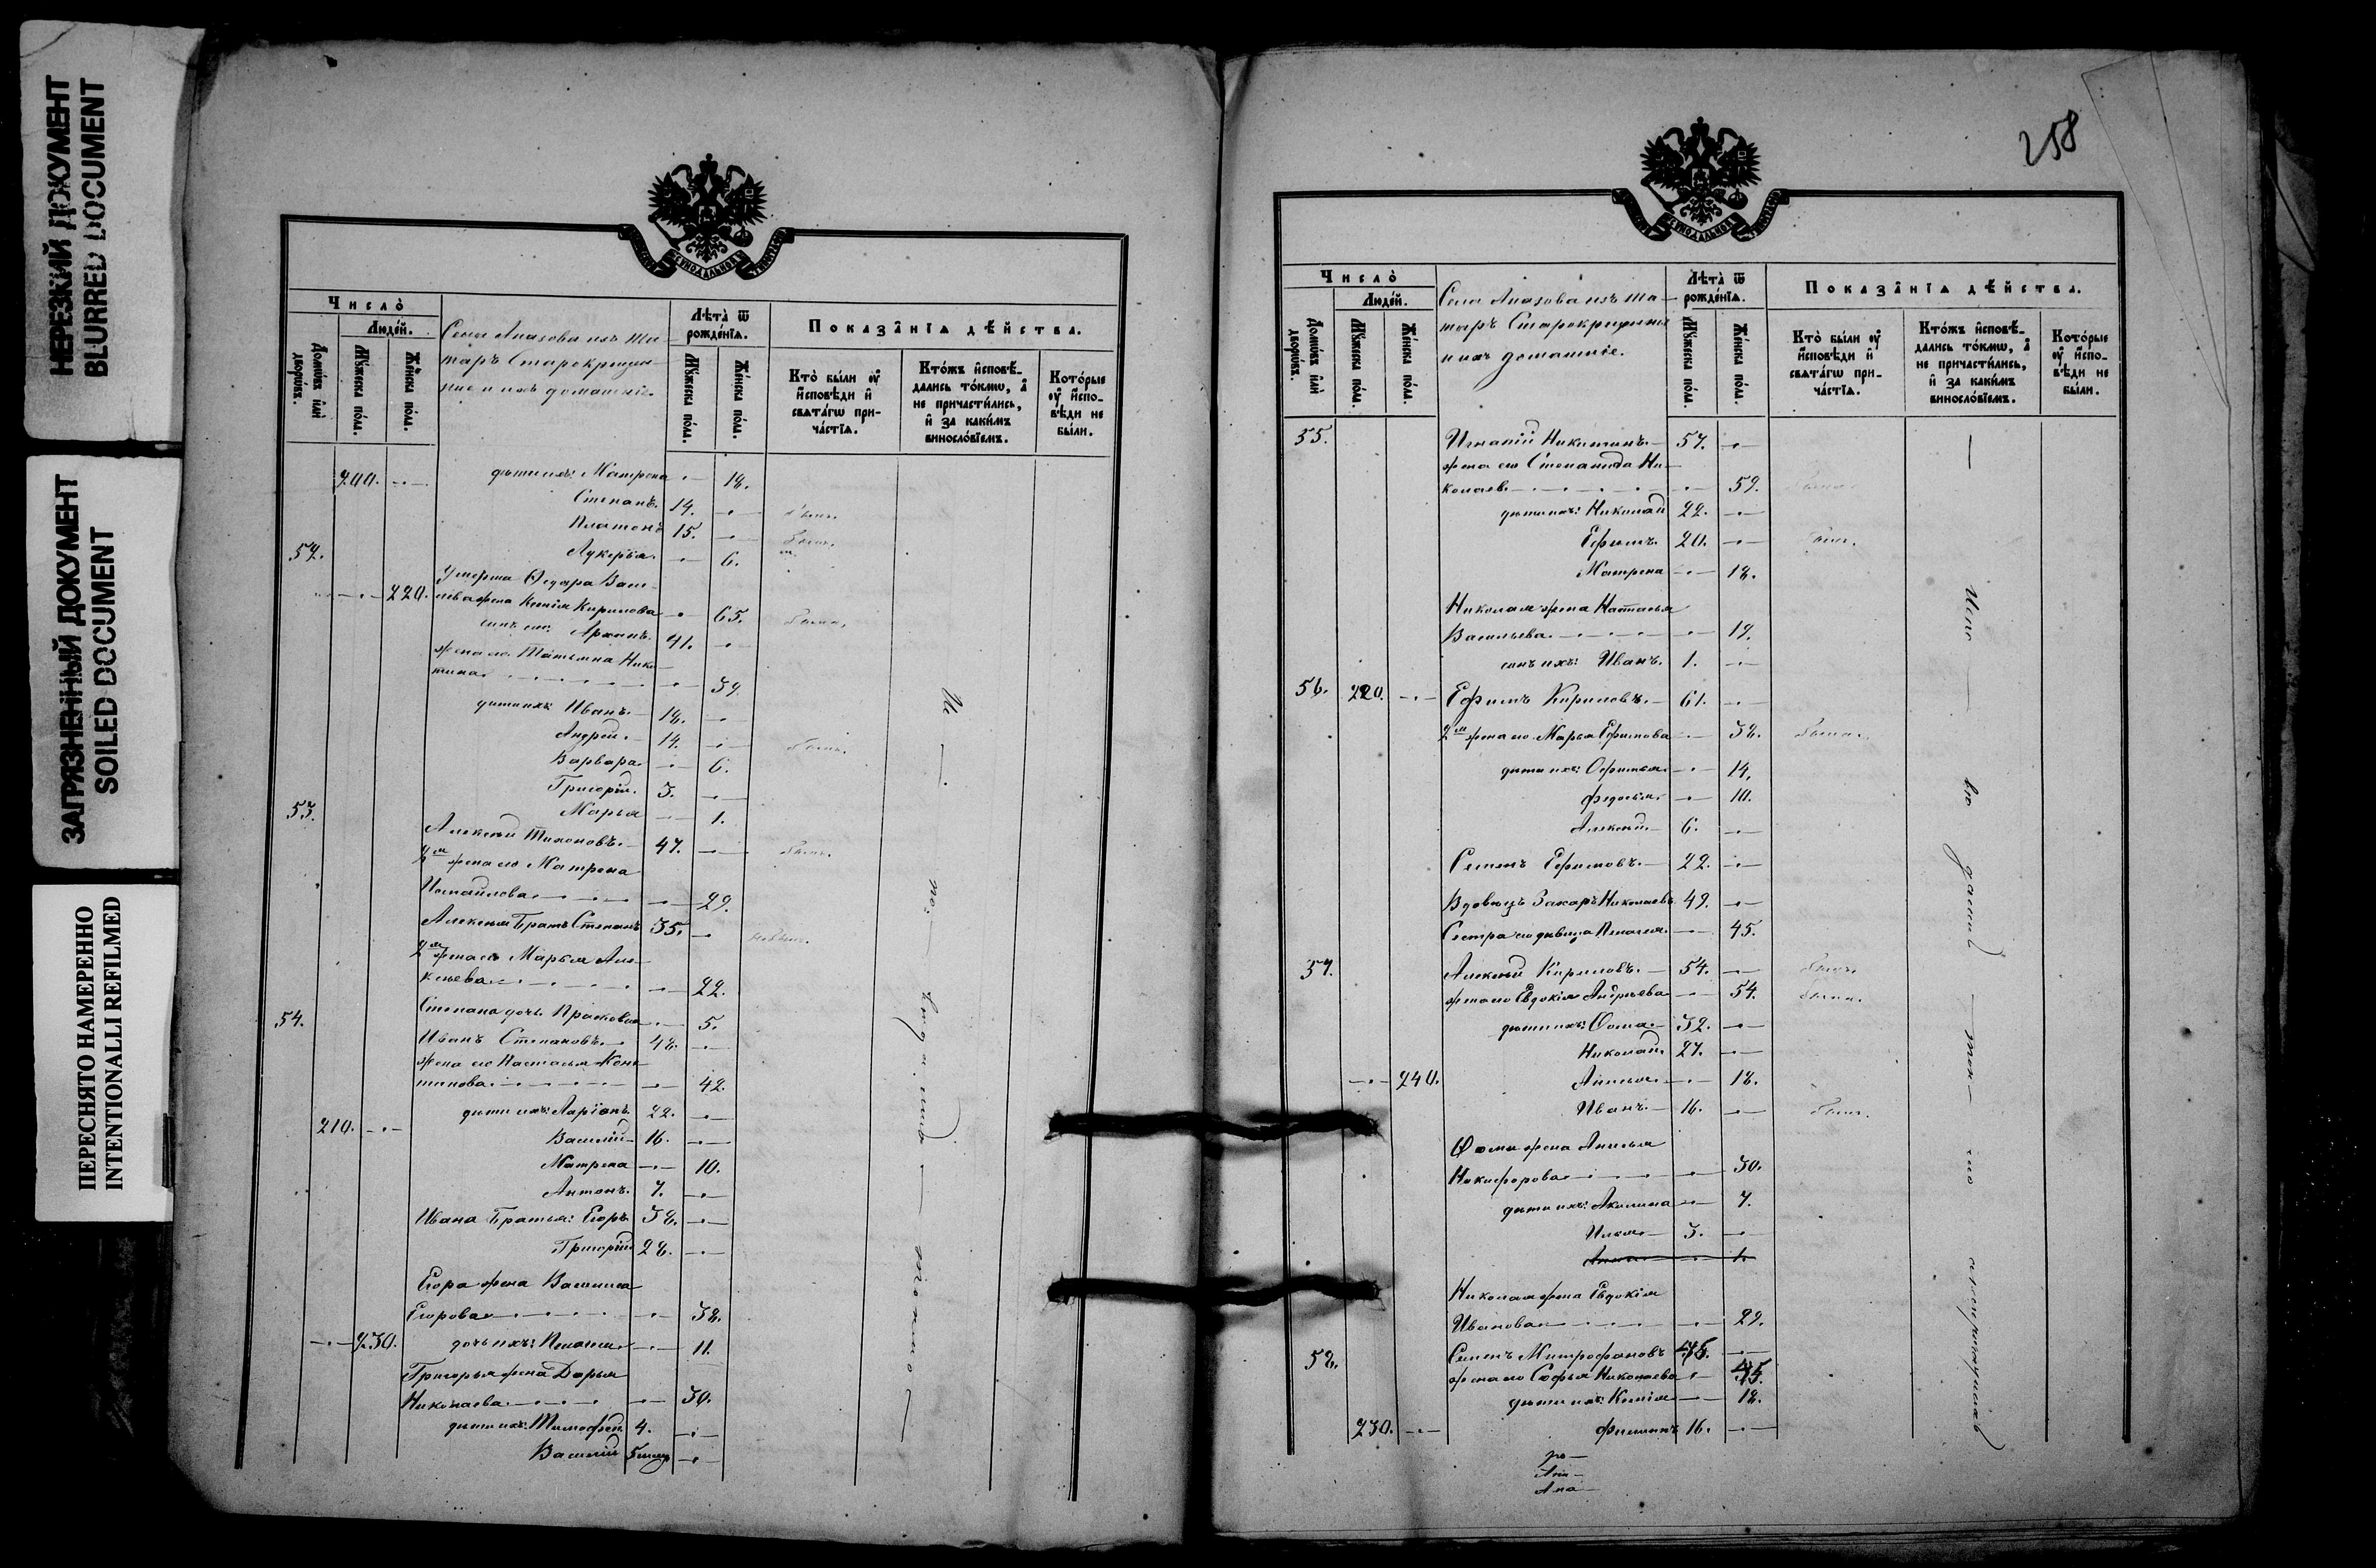 НЕРЕЗКИЙ ДОКУМЕНТ
BLURRED DOCUMENT
ЗАГРЯЗНЕННЫЙ ДОКУМЕНТ
SOILED DOCUMENT
ПЕРЕСНЯТО НАМЕРЕННО
INTENTIONALLI REFILMED
Число̀
Люде́й.
Домѡ́въ и҆лѝ дворѡ́въ.
Мꙋ́жеска по́лꙋ.
Же́нска по́лꙋ.
Села Апазова изъ та-
таръ Старокрещен-
ные и ихъ домашніе.
Лѣ́та ѿ рожде́нїѧ.
Мꙋ́жеска по́лꙋ.
Же́нска по́лꙋ.
Показа̑нїѧ дѣ́йства.
Кто̀ бы́ли ᲂу҆ и҆спо́вѣди и҆ свѧта́гѡ прича́стїѧ.
Кто́жъ и҆сповѣ́дались то́кмѡ, а҆ не причасти́лись, и҆ за каки́мъ винослові́емъ.
Кото́рые ᲂу҆ и҆спо́вѣди не бы́ли.
200. дѣти ихъ: Матрена 18.
Степанъ. 14.
Платонъ 15.
Лукерья. 6.
52.
Умерша Ѳедора Васи-
220. льева жена Ксенія Кирилова 65. была.
сынъ его: Архипъ. 41.
жена его Татьяна Ники-
тина 39.
дѣти ихъ: Иванъ. 18.
Андрей. 14. былъ.
Варвара. 6.
Григорій. 3.
Марья 1.
53.
Алексѣй Тихоновъ. 47. былъ.
2я жена его Матрена
Измайлова 29.
Алексѣя братъ Степанъ 35.
2я жена его Марья Але-
ксѣева 22.
Степана дочь Прасковья 5.
54.
Иванъ Степановъ. 48.
жена его Настасья Конс-
тинова 42.
дѣти ихъ: Ларіонъ. 22.
210. Василій 16.
Матрена 10.
Антонъ. 7.
Ивана братья: Егоръ 38.
Григорій 28.
Егора жена Василиса
Егорова 38.
230. дочь ихъ: Пелагея 11.
Григорья жена Дарья
Николаева 30.
дѣти ихъ: Тимофей. 4.
Василій
258
Число̀
Люде́й.
Домѡ́въ и҆лѝ дворѡ́въ.
Мꙋ́жеска по́лꙋ.
Же́нска по́лꙋ.
Села Апазова изъ та-
таръ Старокрещеные
и ихъ домашніе.
Лѣ́та ѿ рожде́нїѧ.
Мꙋ́жеска по́лꙋ.
Же́нска по́лꙋ.
Показа̑нїѧ дѣ́йства.
Кто̀ бы́ли ᲂу҆ и҆спо́вѣди и҆ свѧта́гѡ прича́стїѧ.
Кто́жъ и҆сповѣ́дались то́кмѡ, а҆ не причасти́лись, и҆ за каки́мъ винослові́емъ.
Кото́рые ᲂу҆ и҆спо́вѣди не бы́ли.
55. Игнатій Никитинъ. 57.
жена его Степанида Ни-
колаев. 59. была.
дѣти ихъ: Николай 22.
Ефимъ. 20. былъ.
Матрена 18.
Николая жена Настасья
Васильева 19.
сынъ ихъ: Иванъ. 1.
56. 220. Ефимъ Кириловъ. 61.
2я жена его Марья Ефимова 38. была.
дѣти ихъ: Офимья 14.
Федосья 10.
Алексѣй 6.
Семенъ Ефимовъ. 22.
Вдовецъ Захаръ Николаевъ 49.
Сестра его дѣвица Пелагея. 45.
57. Алексѣй Кириловъ. 54. былъ.
жена его Евдокія Андреева 54. была.
дѣти ихъ: Ѳома. 32.
Николай. 27.
240. Анисья 18.
Иванъ. 16. былъ.
Ѳомы жена Анисья
Никифорова 30.
дѣти ихъ: Акилина 7.
Илья 3.
Николая жена Евдокія
Иванова 29.
58. Семенъ Митрофановъ
жена его Софья Николаева
дѣти ихъ: Ксенія 18.
230. Филипъ 16.